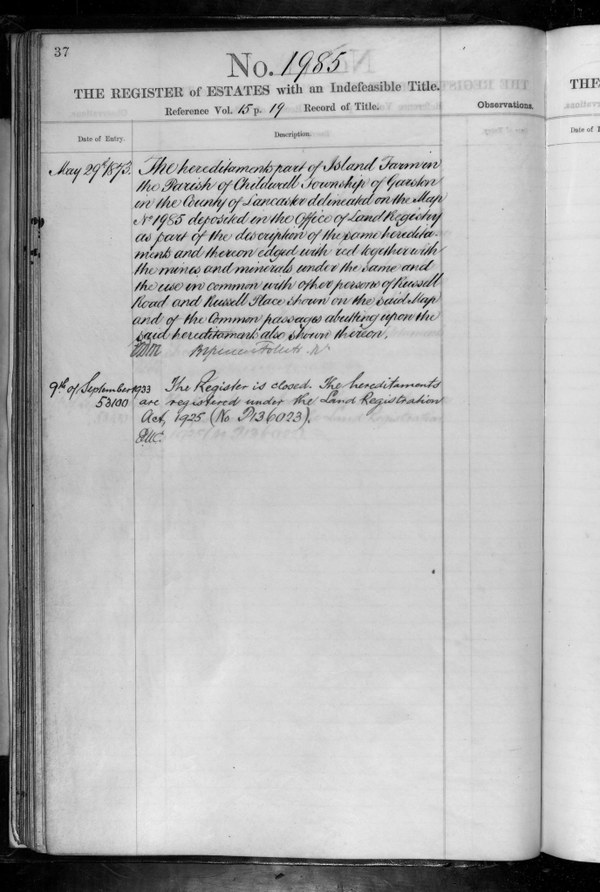 37
No. 1985
THE REGISTER of ESTATES with an Indefeasible Title.
Reference Vol. 15 p. 19 Record of Title.
Observations.
Date of Entry.
Description.
May 29th 1873.
The hereditaments part of Island Farm in
the Parish of Childwall Township of Garston
in the County of Lancaster delineated on the Map
No 1985 deposited in the Office of Land Registry
as part of the description of the same heredita-
ments and thereon edged with red together with
the mines and minerals under the same and
the use in common with other persons of Russell
Road and Russell Place shown on the said Map
and of the Common passages abutting upon the
said hereditaments also shown thereon.
9th of September 1933
53100
The Register is closed. The hereditaments
are registered under the Land Registration
Act, 1925 (No P136023).
THE
Date of E